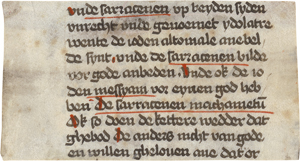 vnde sarracenen vp beyden syden
vnrecht vnde genoemet ydolatre
wente de ioden altomale anebel
de synt. vnde de sarracenen bilde
vor gode anbeden. Vnde ok de io
den messyam vor eynen god heb
ben De sarracenen machametū
Ok so doen de kettere wedder dat
ghebod De anders nicht van gode
en willen ghelouen ane dat or